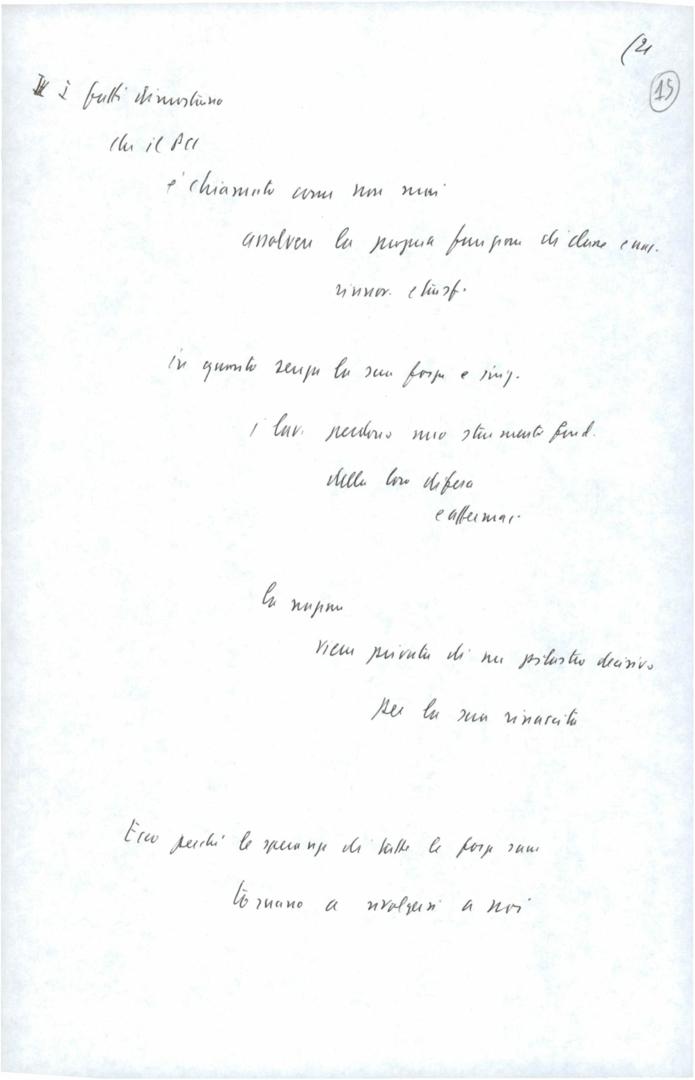 (21
15
I fatti dimostrano
che il PCI
e' chiamato come non mai
assolvere la propria funzione di classe e naz.
rinnov. e trasf.
in quanto senza la sua forza e
i lav. perdono uno strumento fond.
della loro difesa
e affermaz.
la nazione
viene privata di un pilastro decisivo
per la sua rinascita
Ecco perché le speranze di tutte le forze sane
tornano a rivolgersi a noi